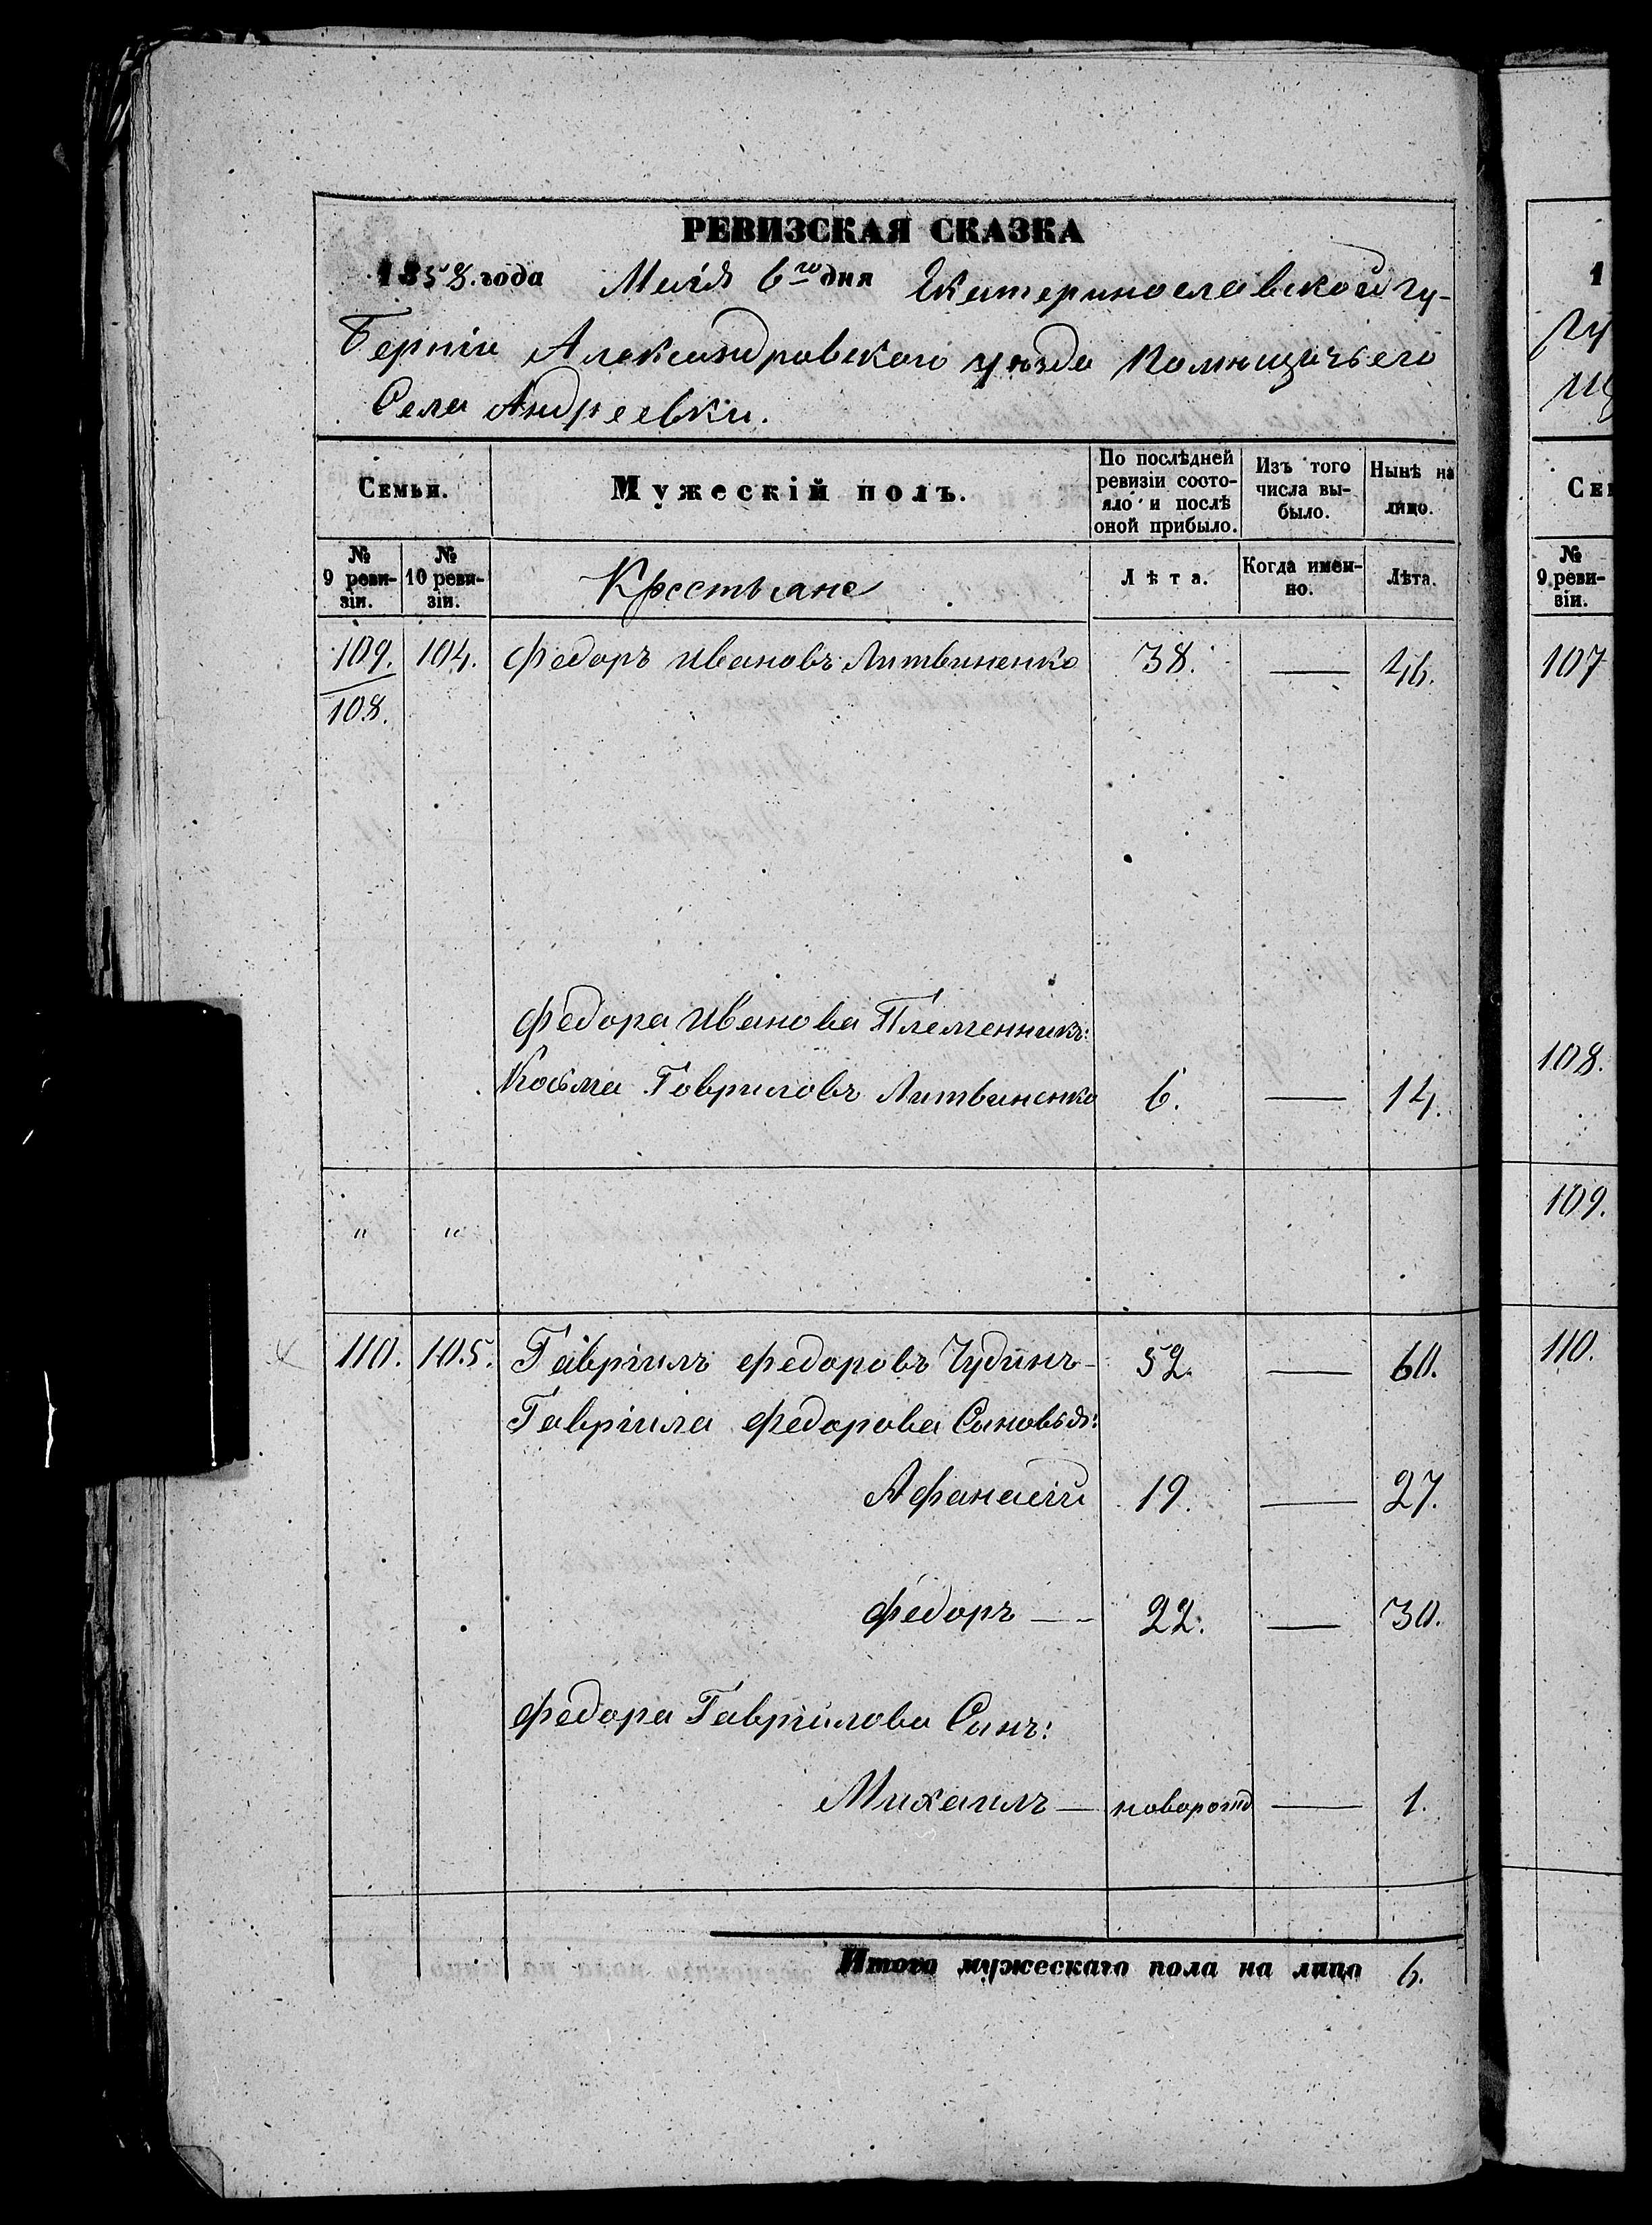 РЕВИЗСКАЯ СКАЗКА
1858. года Маія 6го дня Екатеринославской гу-
берніи Александровскаго уезда Помещичьего
Села Андреевки.
Семьи.
Мужескій полъ.
По послѣдней ревизіи состо-
яло и послѣ оной прибыло.
Изъ того числа вы-
было.
Нынѣ на лицо.
№ 9 реви-
зіи.
№ 10 реви-
зіи.
Крестьяне
Лѣта.
Когда имен-
но.
Лѣта.
109. 104. Федоръ Ивановъ Литвиненко 38. — 46.
108.
Федора Иванова Племенникъ:
Косьма Гавриловъ Литвиненко 6. — 14.
" "
110. 105. Гавріилъ Федоровъ Чудинъ - 52. — 60.
Гавріила Федорова Сыновья:
Афанасій 19. — 27.
Федоръ — 22. — 30.
Федора Гаврилова Сынъ:
Михаилъ — новорожд — 1.
Итого мужескаго пола на лицо 6.
1
гу
щ
Се
№
9 реви-
зіи.
107
108.
109.
110.